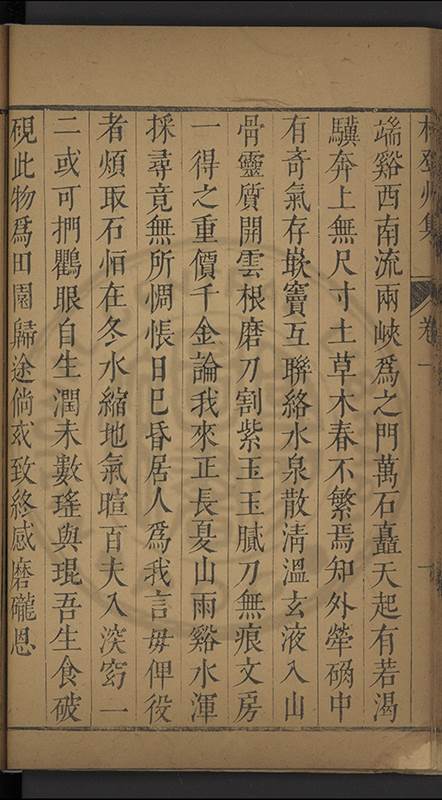 卷一
端谿西南流兩峽爲之門萬石矗天起有若渴
驥奔上無尺寸土草木春不繁焉知外犖确中
有奇氣存嵌竇互聯絡水泉散清溫玄液入山
骨靈質開雲根磨刀割紫玉玉膩刀無痕文房
一得之重價千金論我來正長夏山雨谿水渾
採尋竟無所惆悵日巳昏居人爲我言毋俾役
者煩取石恒在冬水縮地氣暄百夫入深窈一
二或可捫鸜眼自生潤未數瑤與琨吾生食破
硯此物爲田園歸途倘或致終感磨礲恩